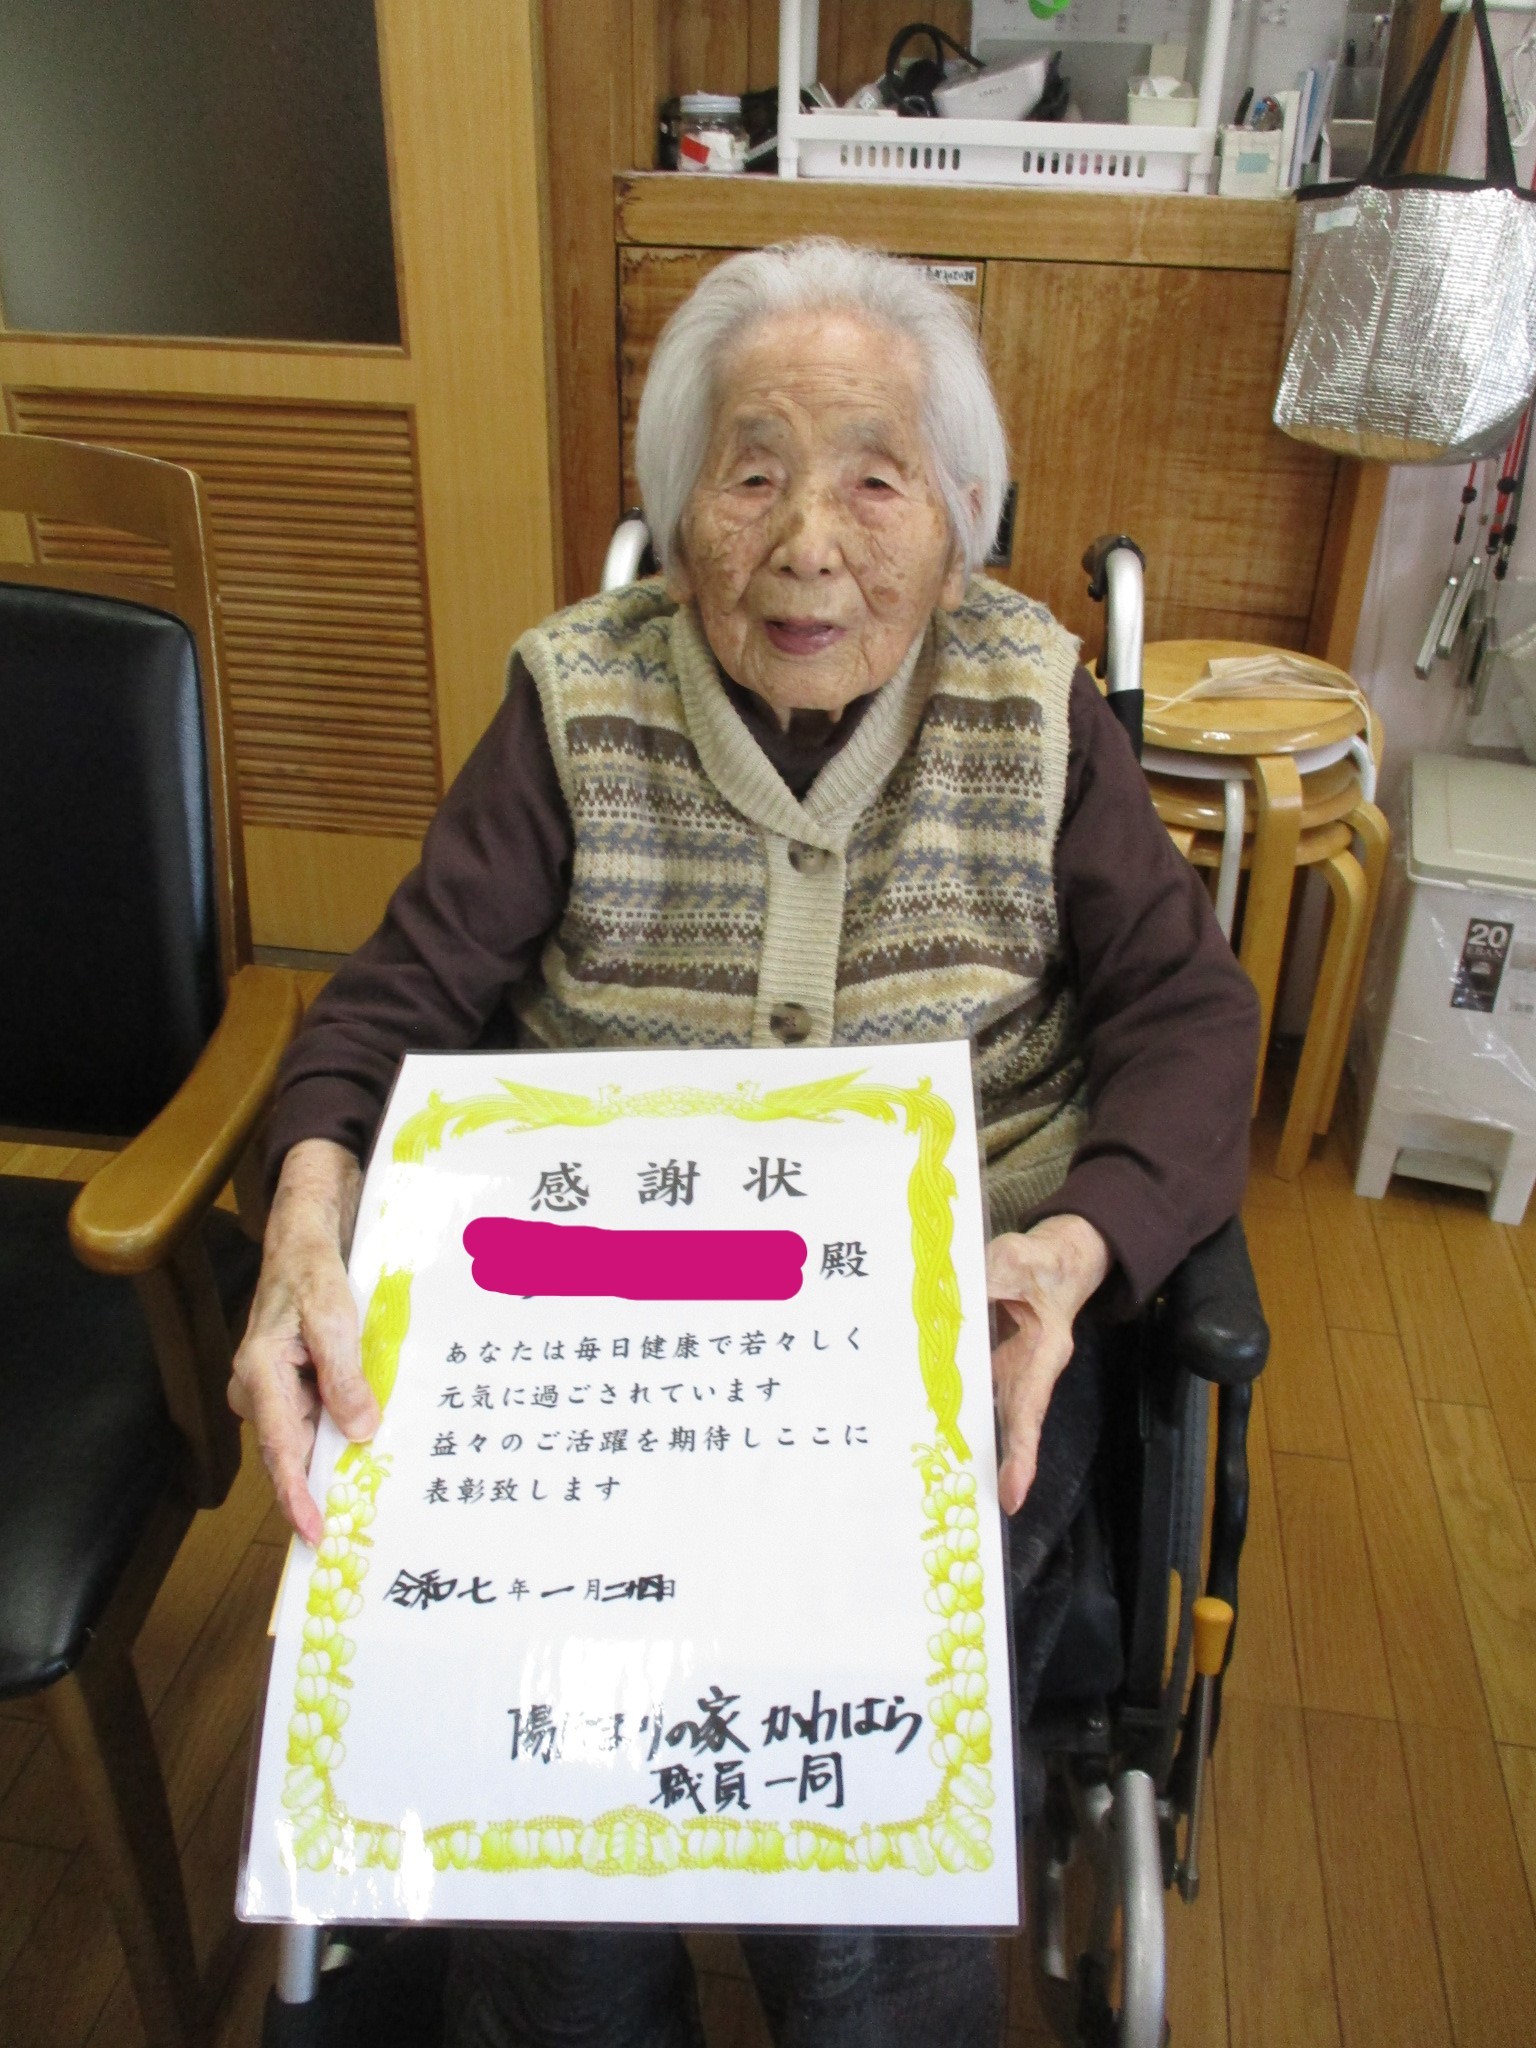 20
感謝状
殿
あなたは毎日健康で若々しく
元気に過ごされています
益々のご活躍を期待しここに
表彰致します
令和七年一月二十四日
陽だまりの家 かわはら
職員一同